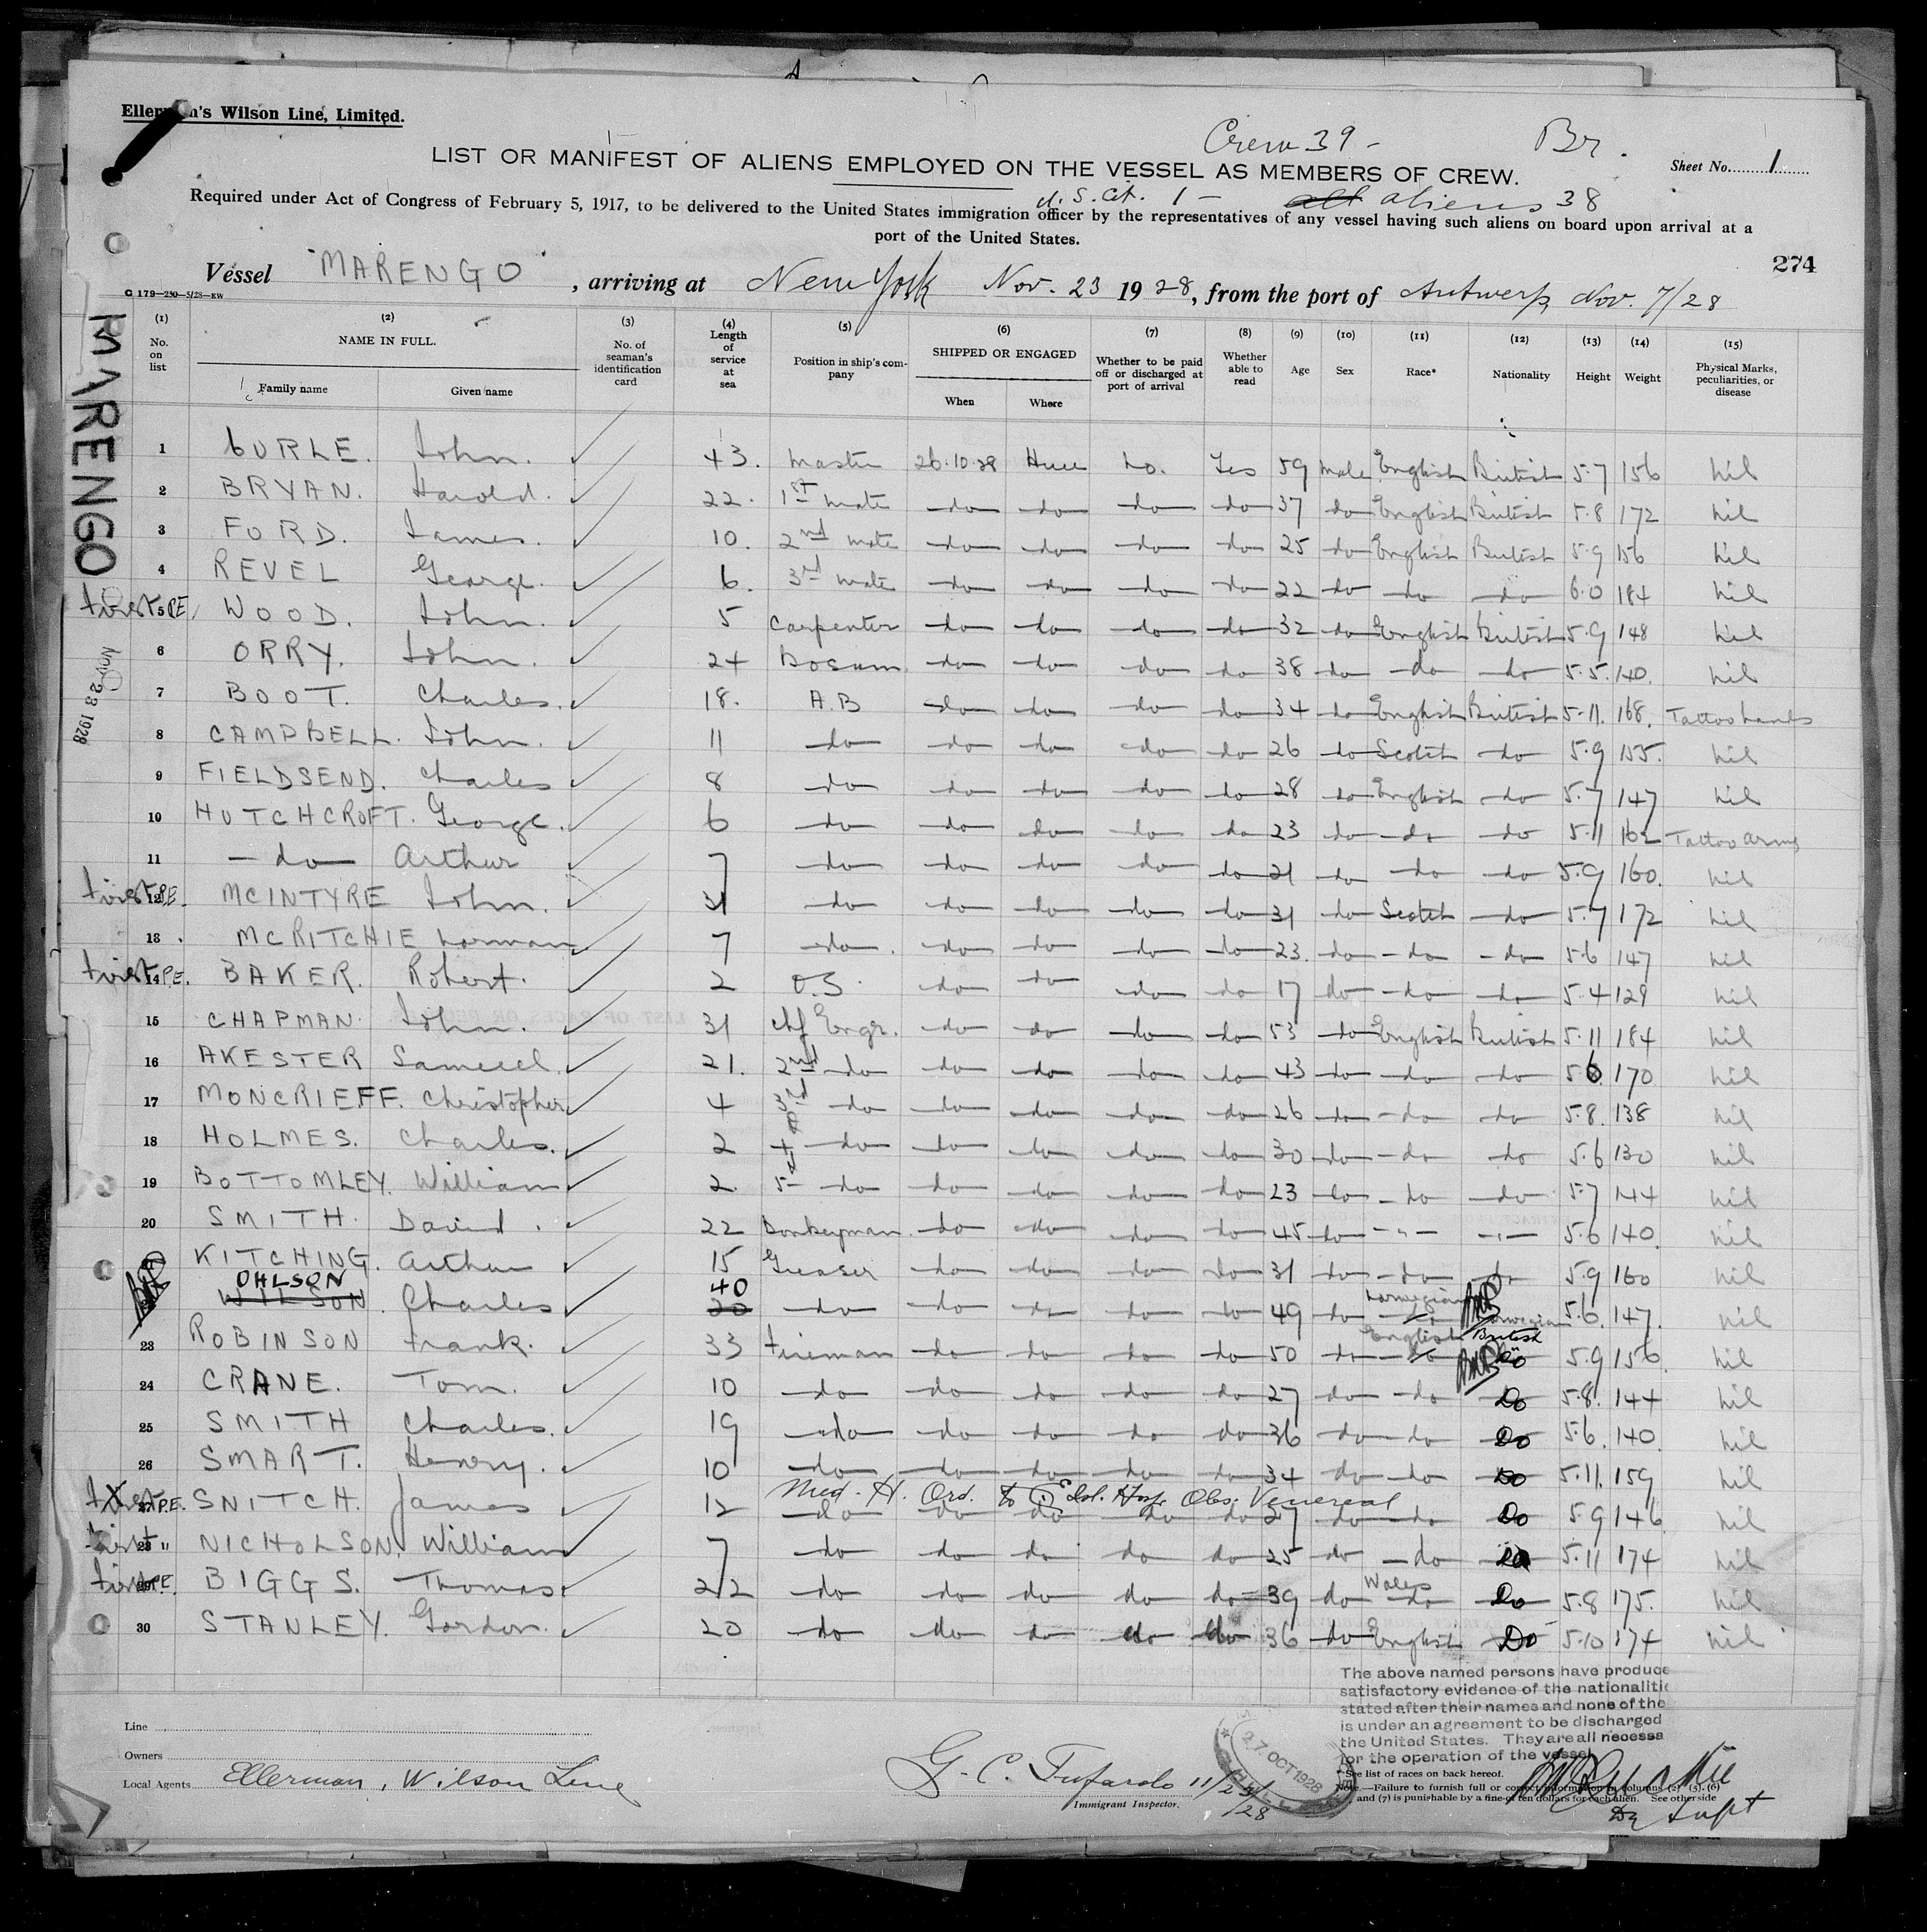 Ellerman's Wilson Line, Limited.
Crew 39 - Br.
LIST OR MANIFEST OF ALIENS EMPLOYED ON THE VESSEL AS MEMBERS OF CREW.
Sheet No. 1
U.S. Cit. 1 - all aliens 38
Required under Act of Congress of February 5, 1917, to be delivered to the United States immigration officer by the representatives of any vessel having such aliens on board upon arrival at a
port of the United States.
274
Vessel "MARENGO", arriving at New York Nov. 23 1928, from the port of Antwerp, Nov. 7/28
G 179—250—5/28—EW
MARENGO
NOV 23 1928
(1) No. on list (2) NAME IN FULL. Family name Given name (3) No. of seaman's identification card (4) Length of service at sea (5) Position in ship's company (6) SHIPPED OR ENGAGED When Where (7) Whether to be paid off or discharged at port of arrival (8) Whether able to read (9) Age (10) Sex (11) Race* (12) Nationality (13) Height (14) Weight (15) Physical Marks, peculiarities, or disease
1 CURLE. John. 43. Master 26.10.28 Hull No. Yes 59 Male English British 5.7 156 Nil
2 BRYAN. Harold. 22. 1st Mate do do do do 37 do English British 5.8 172 Nil
3 FORD. James. 10. 2nd Mate do do do do 25 do English British 5.9 156 Nil
4 REVEL George. 6. 3rd Mate do do do do 22 do do do 6.0 184 Nil
first P.E. 5 WOOD. John. 5 Carpenter do do do do 32 do English British 5.9 148 Nil
6 ORRY. John. 24 Bosum. do do do do 38 do do do 5.5. 140. Nil
7 BOOT. Charles. 18. A.B do do do do 34 do English British 5.11. 168. Tattoo hands
8 CAMPBELL. John. 11 do do do do do 26 do Scotch do 5.9 155. Nil
9 FIELDSEND. Charles 8 do do do do do 28 do English do 5.7 147 Nil
10 HUTCHCROFT. George. 6 do do do do do 23 do do do 5.11 162 Tattoo arms
11 do Arthur 7 do do do do do 21 do do do 5.9 160. Nil
first P.E. 12 MCINTYRE John. 31 do do do do do 31 do Scotch do 5.7 172 Nil
13 MCRITCHIE Norman 7 do do do do do 23. do do do 5.6 147 Nil
first P.E. 14 BAKER. Robert. 2 O.S. do do do do 17 do do do 5.4 129 Nil
15 CHAPMAN. John. 31 Chf Engr. do do do do 53 do English British 5.11 184 Nil
16 AKESTER Samuel. 21. 2nd do do do do do 43 do do do 5.6 170 Nil
17 MONCRIEFF. Christopher 4 3rd do do do do do 26 do do do 5.8. 138 Nil
18 HOLMES. Charles. 2 4th do do do do do 30 do do do 5.6 130 Nil
19 BOTTOMLEY. William 2. 5th do do do do do 23 do do do 5.7 144 Nil
20 SMITH. David. 22 Donkeyman. do do do do 45 do -"- -"- 5.6 140. Nil
KITCHING. Arthur 15 Greaser do do do do 31 do do do 5.9 160 Nil
OHLSON WILSON. Charles 40 20 do do do do do 49 do Norwegian do Norwegian 5.6. 147. Nil
23 ROBINSON Frank. 33 Fireman do do do do 50 do English do British do 5.9 156 Nil
24 CRANE. Tom. 10 do do do do do 27 do do Do 5.8. 144 Nil
25 SMITH Charles. 19 do do do do do 36 do do Do 5.6. 140. Nil
26 SMART. Henry. 10 do do do do do 34 do do Do 5.11. 159 Nil
Med. H. Ord. to Isl. Hosp. Obs. Venereal
first P.E. 27 SNITCH. James 12 do do do do do 27 do do Do 5.9 146 Nil
first " 28 NICHOLSON. William 7 do do do do do 25 do do Do 5.11 174 Nil
first P.E. 29 BIGGS. Thomas. 22 do do do do do 39 do Wales do Do 5.8 175. Nil
30 STANLEY. Gordon. 20 do do do do do 36 do English Do 5.10 174 Nil
The above named persons have produce
satisfactory evidence of the nationalitie
stated after their names and none of the
is under an agreement to be discharged
the United States. They are all necessa
for the operation of the vessel
Line
Owners
Local Agents Ellerman, Wilson Line
G. C. Tufarolo 11/23/28
Immigrant Inspector.
27 OCT 1928
* See list of races on back hereof.
Note.—Failure to furnish full or correct information in columns (2) (5), (6)
and (7) is punishable by a fine of ten dollars for each alien. See other side
Dy Supt